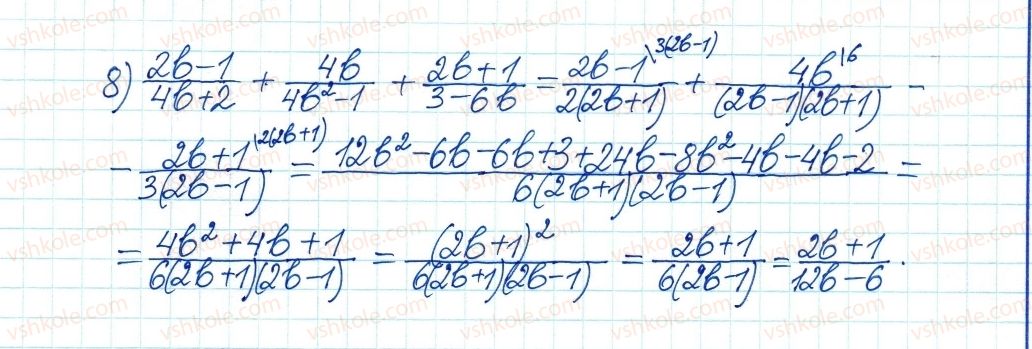 8) (2b-1)/(4b+2) + 4b/(4b²-1) + (2b+1)/(3-6b) = (2b-1)/(2(2b+1)) \3(2b-1) + 4b/((2b-1)(2b+1)) \6 -
- (2b+1)/(3(2b-1)) \2(2b+1) = (12b²-6b-6b+3+24b-8b²-4b-4b-2)/(6(2b+1)(2b-1)) =
= (4b²+4b+1)/(6(2b+1)(2b-1)) = (2b+1)²/(6(2b+1)(2b-1)) = (2b+1)/(6(2b-1)) = (2b+1)/(12b-6).
vshkole.com